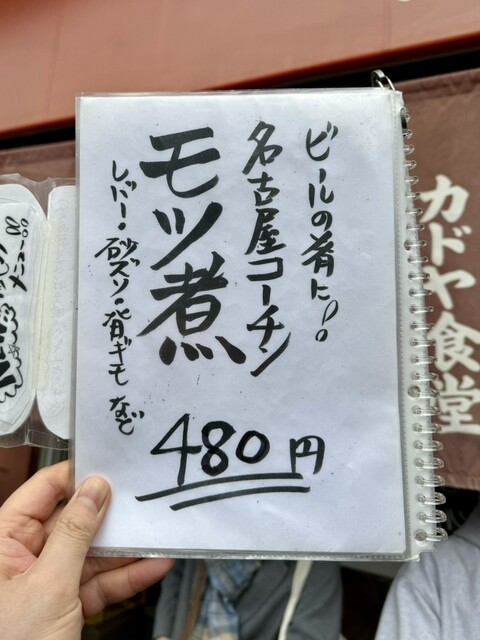 ビールの肴に!!
名古屋コーチン
モツ煮
レバー・砂ズリ・背ギモ など
480円
カドヤ食堂